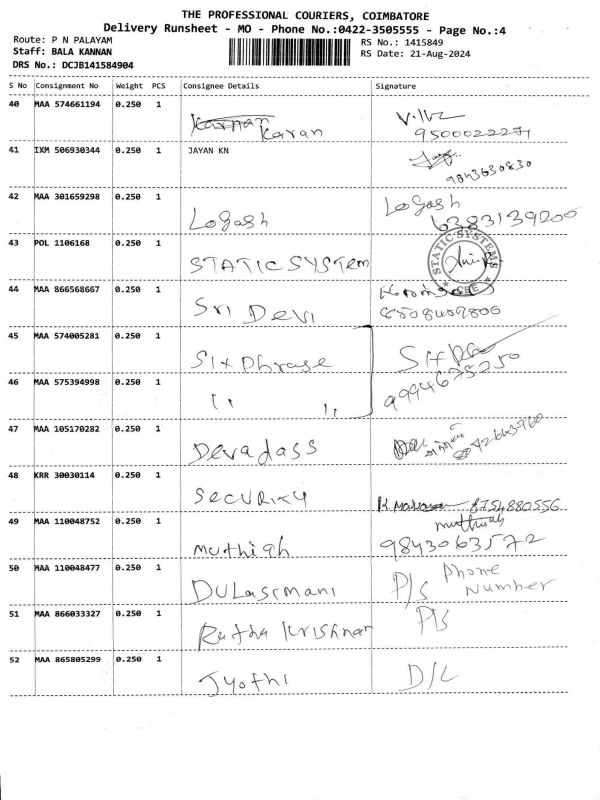 THE PROFESSIONAL COURIERS, COIMBATORE
Delivery Runsheet - MO - Phone No.:0422-3505555 - Page No.:4
Route: P N PALAYAM
RS No.: 1415849
Staff: BALA KANNAN
RS Date: 21-Aug-2024
DRS No.: DCJB141584904
S No Consignment No Weight PCS Consignee Details Signature
40 MAA 574661194 0.250 1 Karan
9500022271
41 IXM 506930344 0.250 1 JAYAN KN
9843630830
42 MAA 301659298 0.250 1 Logash Logash
6383139200
43 POL 1106168 0.250 1 STATIC SYSTEM STATIC SYSTEMS
44 MAA 866568667 0.250 1 Sri Devi
45 MAA 574005281 0.250 1 Six Phrase
9994675250
46 MAA 575394998 0.250 1 " "
47 MAA 105170282 0.250 1 Devadass
48 KRR 30030114 0.250 1 SECURITY
8754880556
49 MAA 110048752 0.250 1 Muthiah muthiah
9843063572
50 MAA 110048477 0.250 1 DULASIMANI P/S Phone Number
51 MAA 866033327 0.250 1 Ratha Krishnan P/S
52 MAA 865805299 0.250 1 Jyothi D/L